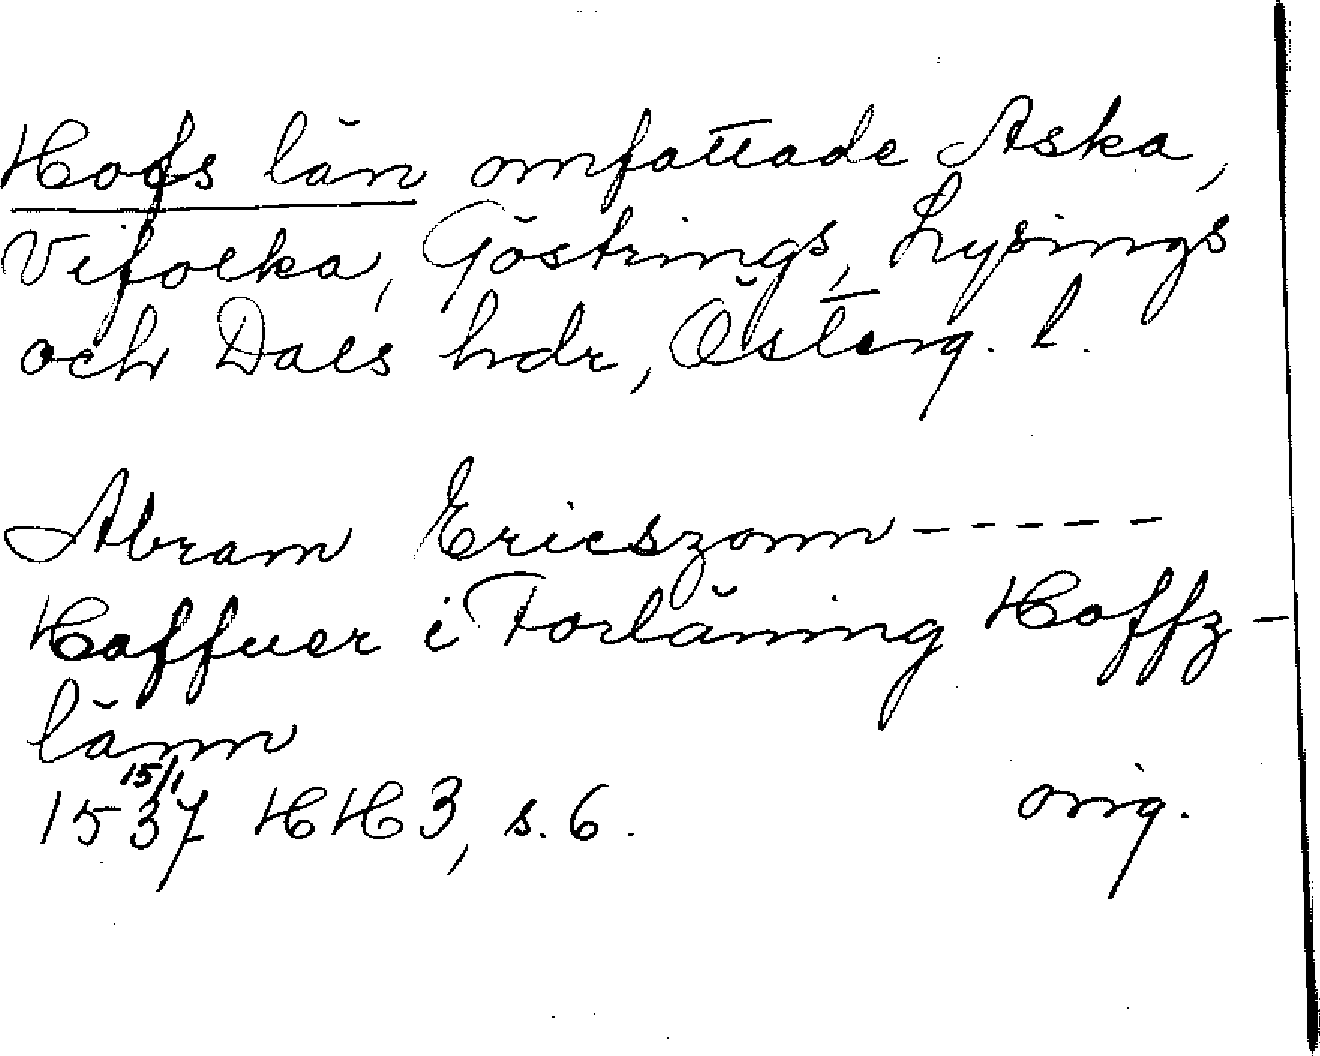 Hofs län omfattade Aska,
Vifolka, Göstrings, Lysings
och Dals hdr, Österg. l.
Abram Ericszonn -----
Haffuer i Forläning Hoffz-
länn
15/1
1537 HH 3, s. 6. orig.